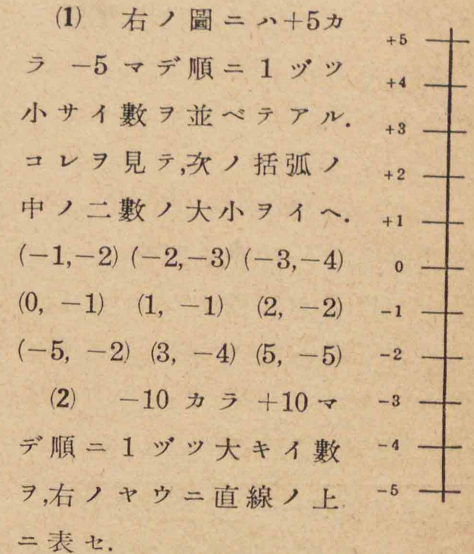 (1) 右ノ圖ニハ+5カ
ラ -5 マデ順ニ 1 ヅツ
小サイ數ヲ並ベテアル.
コレヲ見テ,次ノ括弧ノ
中ノ二數ノ大小ヲイヘ.
(-1,-2) (-2,-3) (-3,-4)
(0, -1) (1, -1) (2, -2)
(-5, -2) (3, -4) (5, -5)
(2) -10 カラ +10 マ
デ順ニ 1 ヅツ大キイ數
ヲ,右ノヤウニ直線ノ上
ニ表セ.
+5
+4
+3
+2
+1
0
-1
-2
-3
-4
-5